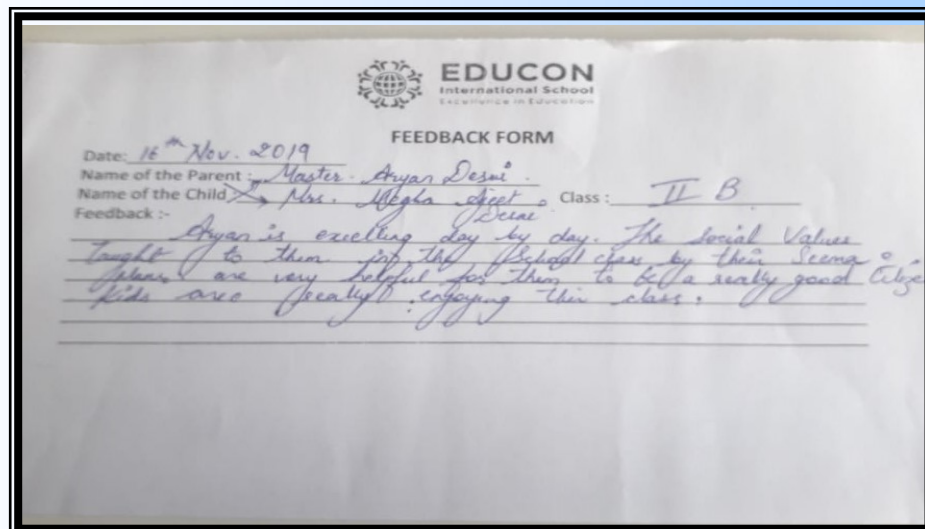 EDUCON
International School
Excellence in Education
FEEDBACK FORM
Date: 16th Nov. 2019
Name of the Parent : Master. Aryan Desai.
Name of the Child Mrs. Megha Ajeet Desai Class : II B
Feedback :-
Aryan is excelling day by day. The Social Values
taught to them in the School class by their Seema
are very helpful for them to be a really good
Kids are really enjoying this class.